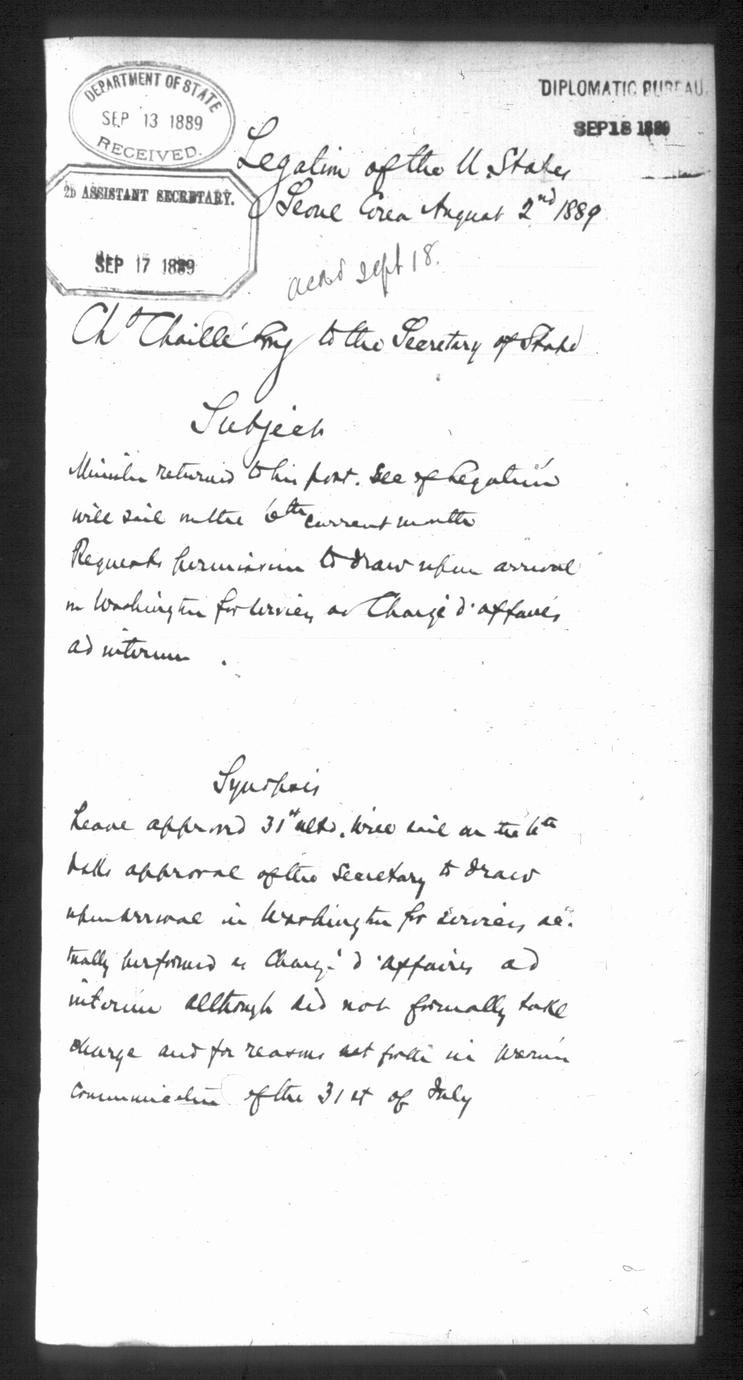 DEPARTMENT OF STATE
SEP 13 1889
RECEIVED.
DIPLOMATIC BUREAU.
SEP 18 1889
2D ASSISTANT SECRETARY.
SEP 17 1889
Legation of the U. States
Seoul Corea August 2nd 1889
Sept 18.
Chs Chaillé Long to the Secretary of State
Subject
Minister returned to his post. Sec of Legation
will sail on the 6th current month
Requests permission to draw upon arrival
in Washington for services as Chargé d'affaires
ad interim.
Synopsis
Leave approved 31st ulto. Will sail on the 6th
asks approval of the Secretary to draw
upon arrival in Washington for services ac-
tually performed as Chargé d'affaires ad
interim although did not formally take
charge and for reasons set forth in
communication of the 31st of July